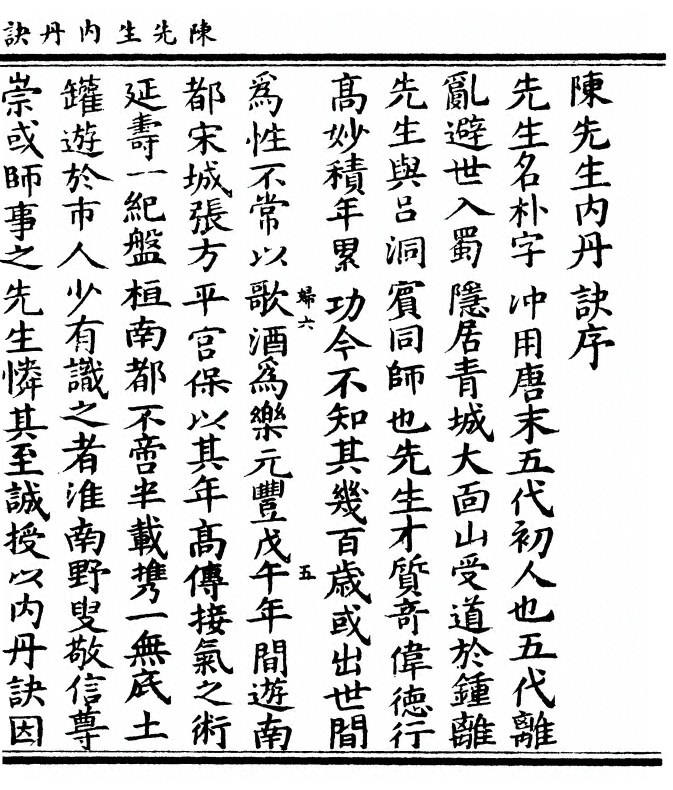 陳先生内丹訣
陳先生内丹訣序
先生名朴字冲用唐末五代初人也五代離
亂避世入蜀隱居青城大面山受道於鍾離
先生與吕洞賓同師也先生才質奇偉德行
髙妙積年累功今不知其幾百歳或出世間
婦六
五
爲性不常以歌酒爲樂元豐戊午年間遊南
都宋城張方平官保以其年髙傳接氣之術
延壽一紀盤桓南都不啻半載擕一無底土
罐遊於市人少有識之者淮南野叟敬信尊
崇或師事之先生憐其至誠授以内丹訣因